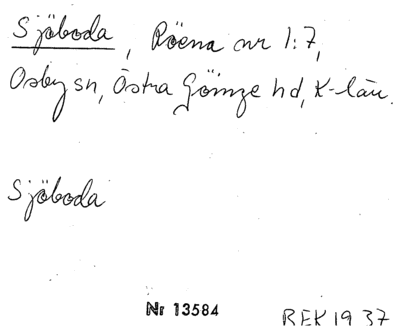 Sjöboda, Röena nr 1:7,
Osby sn, Östra Göinge hd, K-län.
Sjöboda
Nr 13584
REK 1937